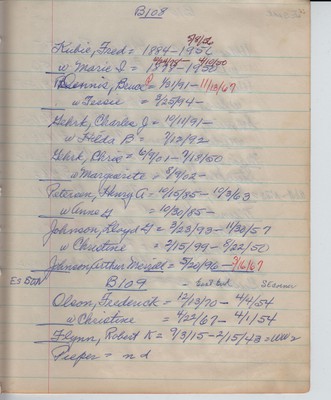 B108
2/8/56
Kubie, Fred = 1884 - 1956
w Marie D = 1888 - 1950
Dennis, Bruce = 1/31/91 - 11/13/67
w Jessie = 2/25/94 -
Gehrk, Charles J = 10/11/91 -
w Hilda B = 7/12/92
Gehrk, Chris = 6/9/01 - 9/18/50
w Marguerite = 8/9/02 -
Petersen, Henry A = 10/15/85 - 10/3/63
w Anne G = 10/30/85 -
Johnson, Lloyd G = 2/23/93 - 11/30/57
w Christine = 2/15/99 - 5/22/50
Johnson, Arthur = 5/20/96 - 7/16/67
B109
Olson, Frederick = 12/13/70 - 4/4/54
w Christine = 4/22/67 - 4/1/54
Flynn, Robert K = 9/3/15 - 2/15/43 = WW 2
Pieper = n d